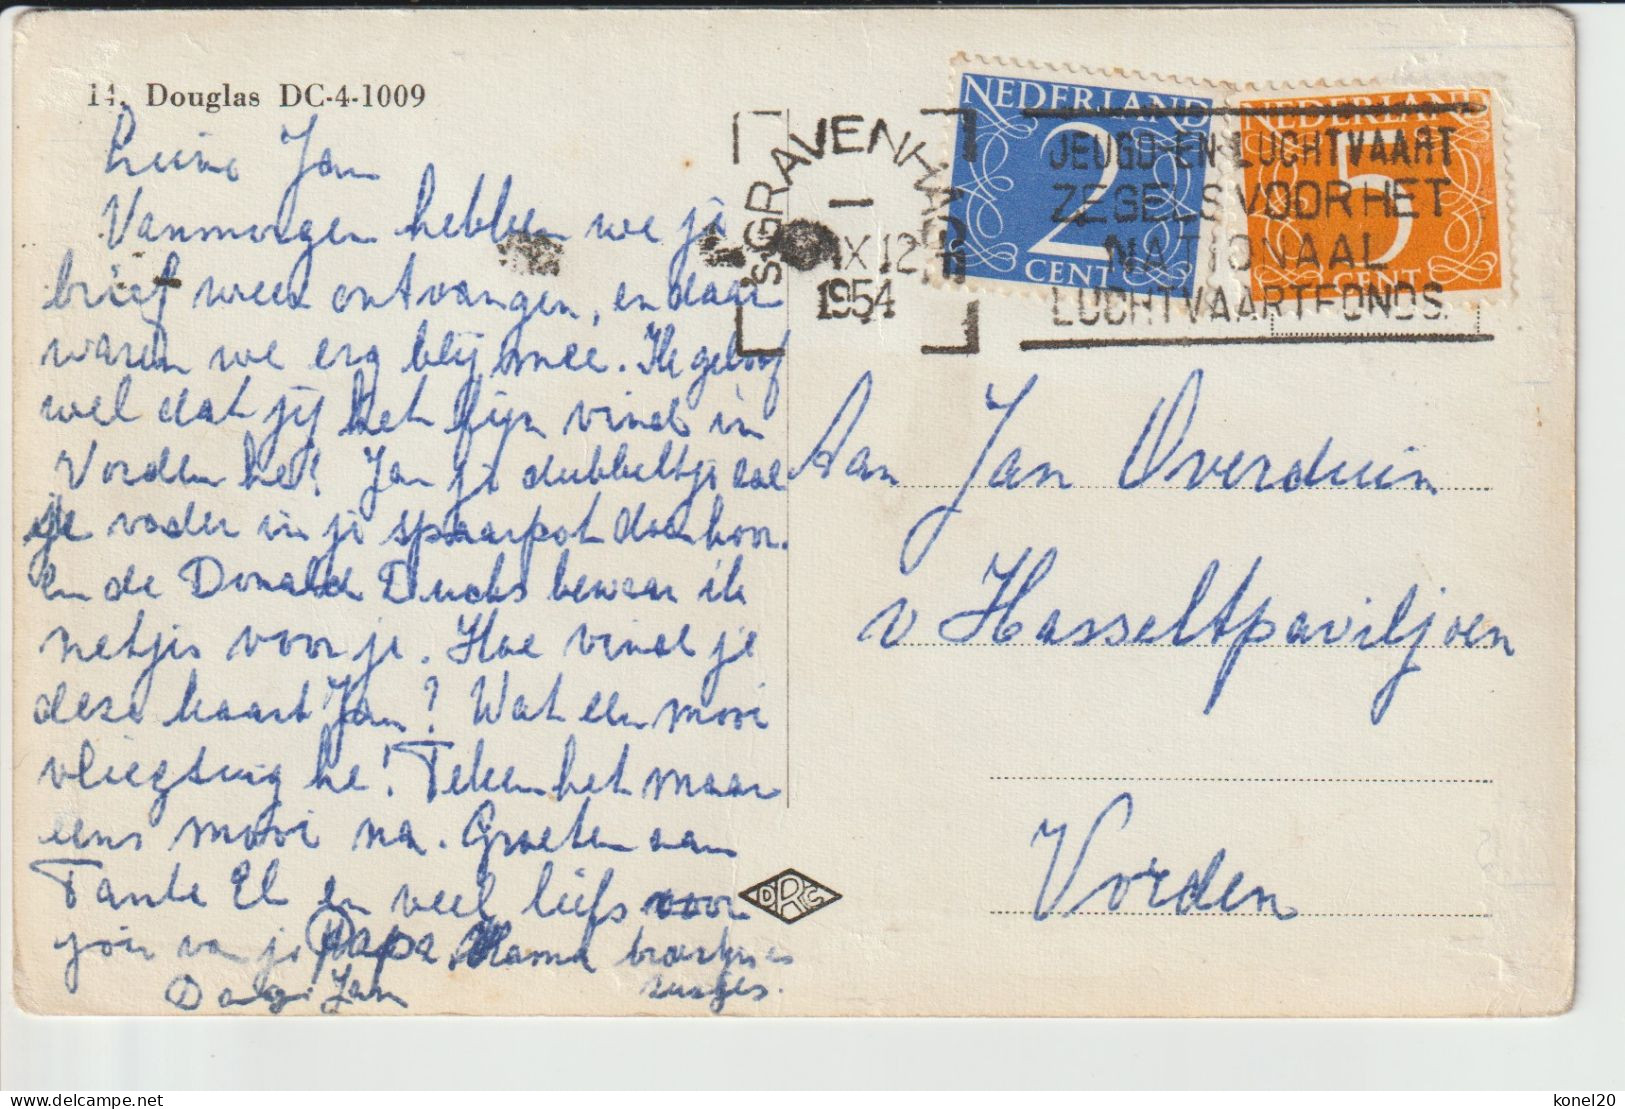 14. Douglas DC-4-1009
Lieve Jan
Vanmorgen hebben we je
brief weer ontvangen, en daar
waren we erg blij mee. Ik geloof
wel dat jij het fijn vind in
Vorden he! Jan je dubbeltje zal
je vader in je spaarpot doen hoor.
en de Donald Ducks bewaar ik
netjes voor je. Hoe vind je
deze kaart Jan? Wat een mooi
vliegtuig he! Teken het maar
eens mooi na. Groeten aan
Tante El en veel liefs voor
jou van je Papa Mama broertjes
zusjes.
Dag Jan
'S-GRAVENHAGE
1
IX 12
1954
NEDERLAND
2
CENT
NEDERLAND
5
CENT
JEUGD-EN LUCHTVAART
ZEGELS VOOR HET
NATIONAAL
LUCHTVAARTFONDS
Aan Jan Overduin
v Hasseltpaviljoen
Vorden
DRS
delcampe.net
konel20